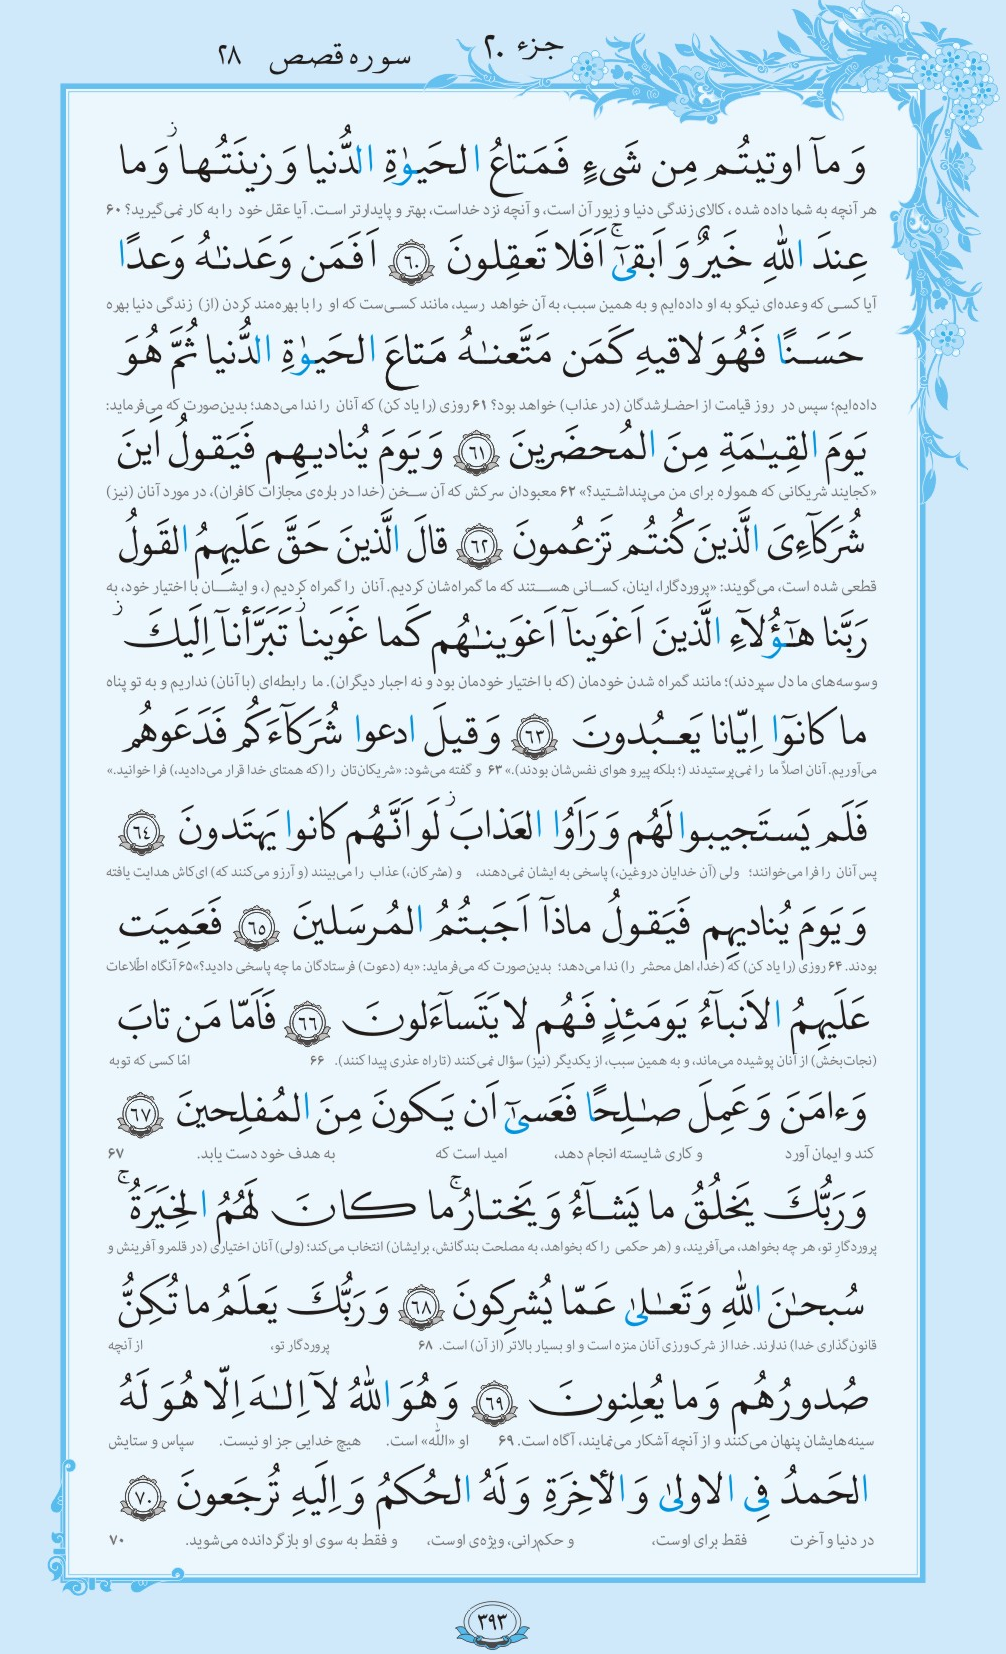 جزء ۲۰
سوره قصص ۲۸
وَ مآ اوتيتُم مِن شَیءٍ فَمَتاعُ الحَيوٰةِ الدُّنيا وَ زينَتُها ۚ وَ ما
هر آنچه به شما داده شده ، کالای زندگی دنیا و زیور آن است، و آنچه نزد خداست، بهتر و پایدارتر است. آیا عقل خود را به کار نمی‌گیرید؟ ۶۰
عِندَ اللّٰهِ خَيرٌ وَ اَبقىٰٓ ۚ اَفَلا تَعقِلونَ ﴿٦٠﴾ اَفَمَن وَعَدنـٰهُ وَعدًا
آیا کسـی که وعده‌ای نیکو به او داده‌ایم و به همین سبب، به آن خواهد رسید، مانند کسـی‌ست که او را با بهره‌مند کردن (از) زندگی دنیا بهره
حَسَنًا فَهُوَ لاقيهِ كَمَن مَتَّعنـٰهُ مَتاعَ الحَيوٰةِ الدُّنيا ثُمَّ هُوَ
داده‌ایم؛ سپس در روز قیامت از احضارشدگان (در عذاب) خواهد بود؟ ۶۱ روزی (را یاد کن) که آنان را ندا می‌دهد؛ بدین‌صورت که می‌فرماید:
يَومَ القِيـٰمَةِ مِنَ المُحضَرينَ ﴿٦١﴾ وَ يَومَ يُناديهِم فَيَقولُ اَينَ
«کجایند شریکانی که همواره برای من می‌پنداشتید؟» ۶۲ معبودان سرکش که آن سـخن (خدا در باره‌ی مجازات کافران)، در مورد آنان (نیز)
شُرَكآءِىَ الَّذينَ كُنتُم تَزعُمونَ ﴿٦٢﴾ قالَ الَّذينَ حَقَّ عَلَيهِمُ القَولُ
قطعی شده است، می‌گویند: «پروردگارا، اینان، کسـانی هسـتند که ما گمراه‌شان کردیم. آنان را گمراه کردیم (، و ایشـان با اختیار خود، به
رَبَّنا هـٰٓؤُلآءِ الَّذينَ اَغوَينآ اَغوَينـٰهُم كَما غَوَينا ۖ تَبَرَّأنآ اِلَيكَ ۖ
وسوسه‌های ما دل سپردند)؛ مانند گمراه شدن خودمان (که با اختیار خودمان بود و نه اجبار دیگران). ما رابطه‌ای (با آنان) نداریم و به تو پناه
ما كانوٓا اِيّانا يَعبُدونَ ﴿٦٣﴾ وَ قيلَ ادعوا شُرَكآءَكُم فَدَعَوهُم
می‌آوریم. آنان اصلاً ما را نمی‌پرستیدند (؛ بلکه پیرو هوای نفس‌شان بودند).» ۶۳ و گفته می‌شود: «شریکان‌تان را (که همتای خدا قرار می‌دادید،) فرا خوانید.»
فَلَم يَستَجيبوا لَهُم وَ رَاَوُا العَذابَ ۚ لَو اَنَّهُم كانوا يَهتَدونَ ﴿٦٤﴾
پس آنان را فرا می‌خوانند؛ ولی (آن خدایان دروغین،) پاسخی به ایشان نمی‌دهند، و (مشرکان،) عذاب را می‌بینند (و آرزو می‌کنند که) ای‌کاش هدایت یافته
وَ يَومَ يُناديهِم فَيَقولُ ماذآ اَجَبتُمُ المُرسَلينَ ﴿٦٥﴾ فَعَمِيَت
بودند. ۶۴ روزی (را یاد کن) که (خدا، اهل محشر را) ندا می‌دهد؛ بدین‌صورت که می‌فرماید: «به (دعوت) فرستادگان ما چه پاسخی دادید؟» ۶۵ آنگاه اطّلاعات
عَلَيهِمُ الاَنبآءُ يَومَئِذٍ فَهُم لا يَتَسآءَلونَ ﴿٦٦﴾ فَاَمّا مَن تابَ
(نجات‌بخش) از آنان پوشیده می‌ماند، و به همین سبب، از یکدیگر (نیز) سؤال نمی‌کنند (تا راه عذری پیدا کنند). ۶۶ امّا کسی که توبه
وَ ءامَنَ وَ عَمِلَ صـٰلِحًا فَعَسىٰٓ اَن يَكونَ مِنَ المُفلِحينَ ﴿٦٧﴾
کند و ایمان آورد و کاری شایسته انجام دهد، امید است که به هدف خود دست یابد. ۶۷
وَ رَبُّكَ يَخلُقُ ما يَشآءُ وَ يَختارُ ۗ ما كانَ لَهُمُ الخِيَرَةُ ۚ
پروردگارِ تو، هر چه بخواهد، می‌آفریند، و (هر حکمی را که بخواهد، به مصلحت بندگانش، برایشان) انتخاب می‌کند؛ (ولی) آنان اختیاری (در قلمرو آفرینش و
سُبحـٰنَ اللّٰهِ وَ تَعـٰلىٰ عَمّا يُشرِكونَ ﴿٦٨﴾ وَ رَبُّكَ يَعلَمُ ما تُكِنُّ
قانون‌گذاری خدا) ندارند. خدا از شرک‌ورزی آنان منزه است و او بسیار بالاتر (از آن) است. ۶۸ پروردگار تو، از آنچه
صُدورُهُم وَ ما يُعلِنونَ ﴿٦٩﴾ وَ هُوَ اللّٰهُ لآ اِلـٰهَ اِلّا هُوَ ۖ لَهُ
سینه‌هایشان پنهان می‌کنند و از آنچه آشکار می‌نمایند، آگاه است. ۶۹ او «اللّٰه» است. هیچ خدایی جز او نیست. سپاس و ستایش
الحَمدُ فِى الاولىٰ وَ الأخِرَةِ وَ لَهُ الحُكمُ وَ اِلَيهِ تُرجَعونَ ﴿٧٠﴾
در دنیا و آخرت فقط برای اوست، و حکمرانی، ویژه‌ی اوست، و فقط به سوی او بازگردانده می‌شوید. ۷۰
۳۹۳